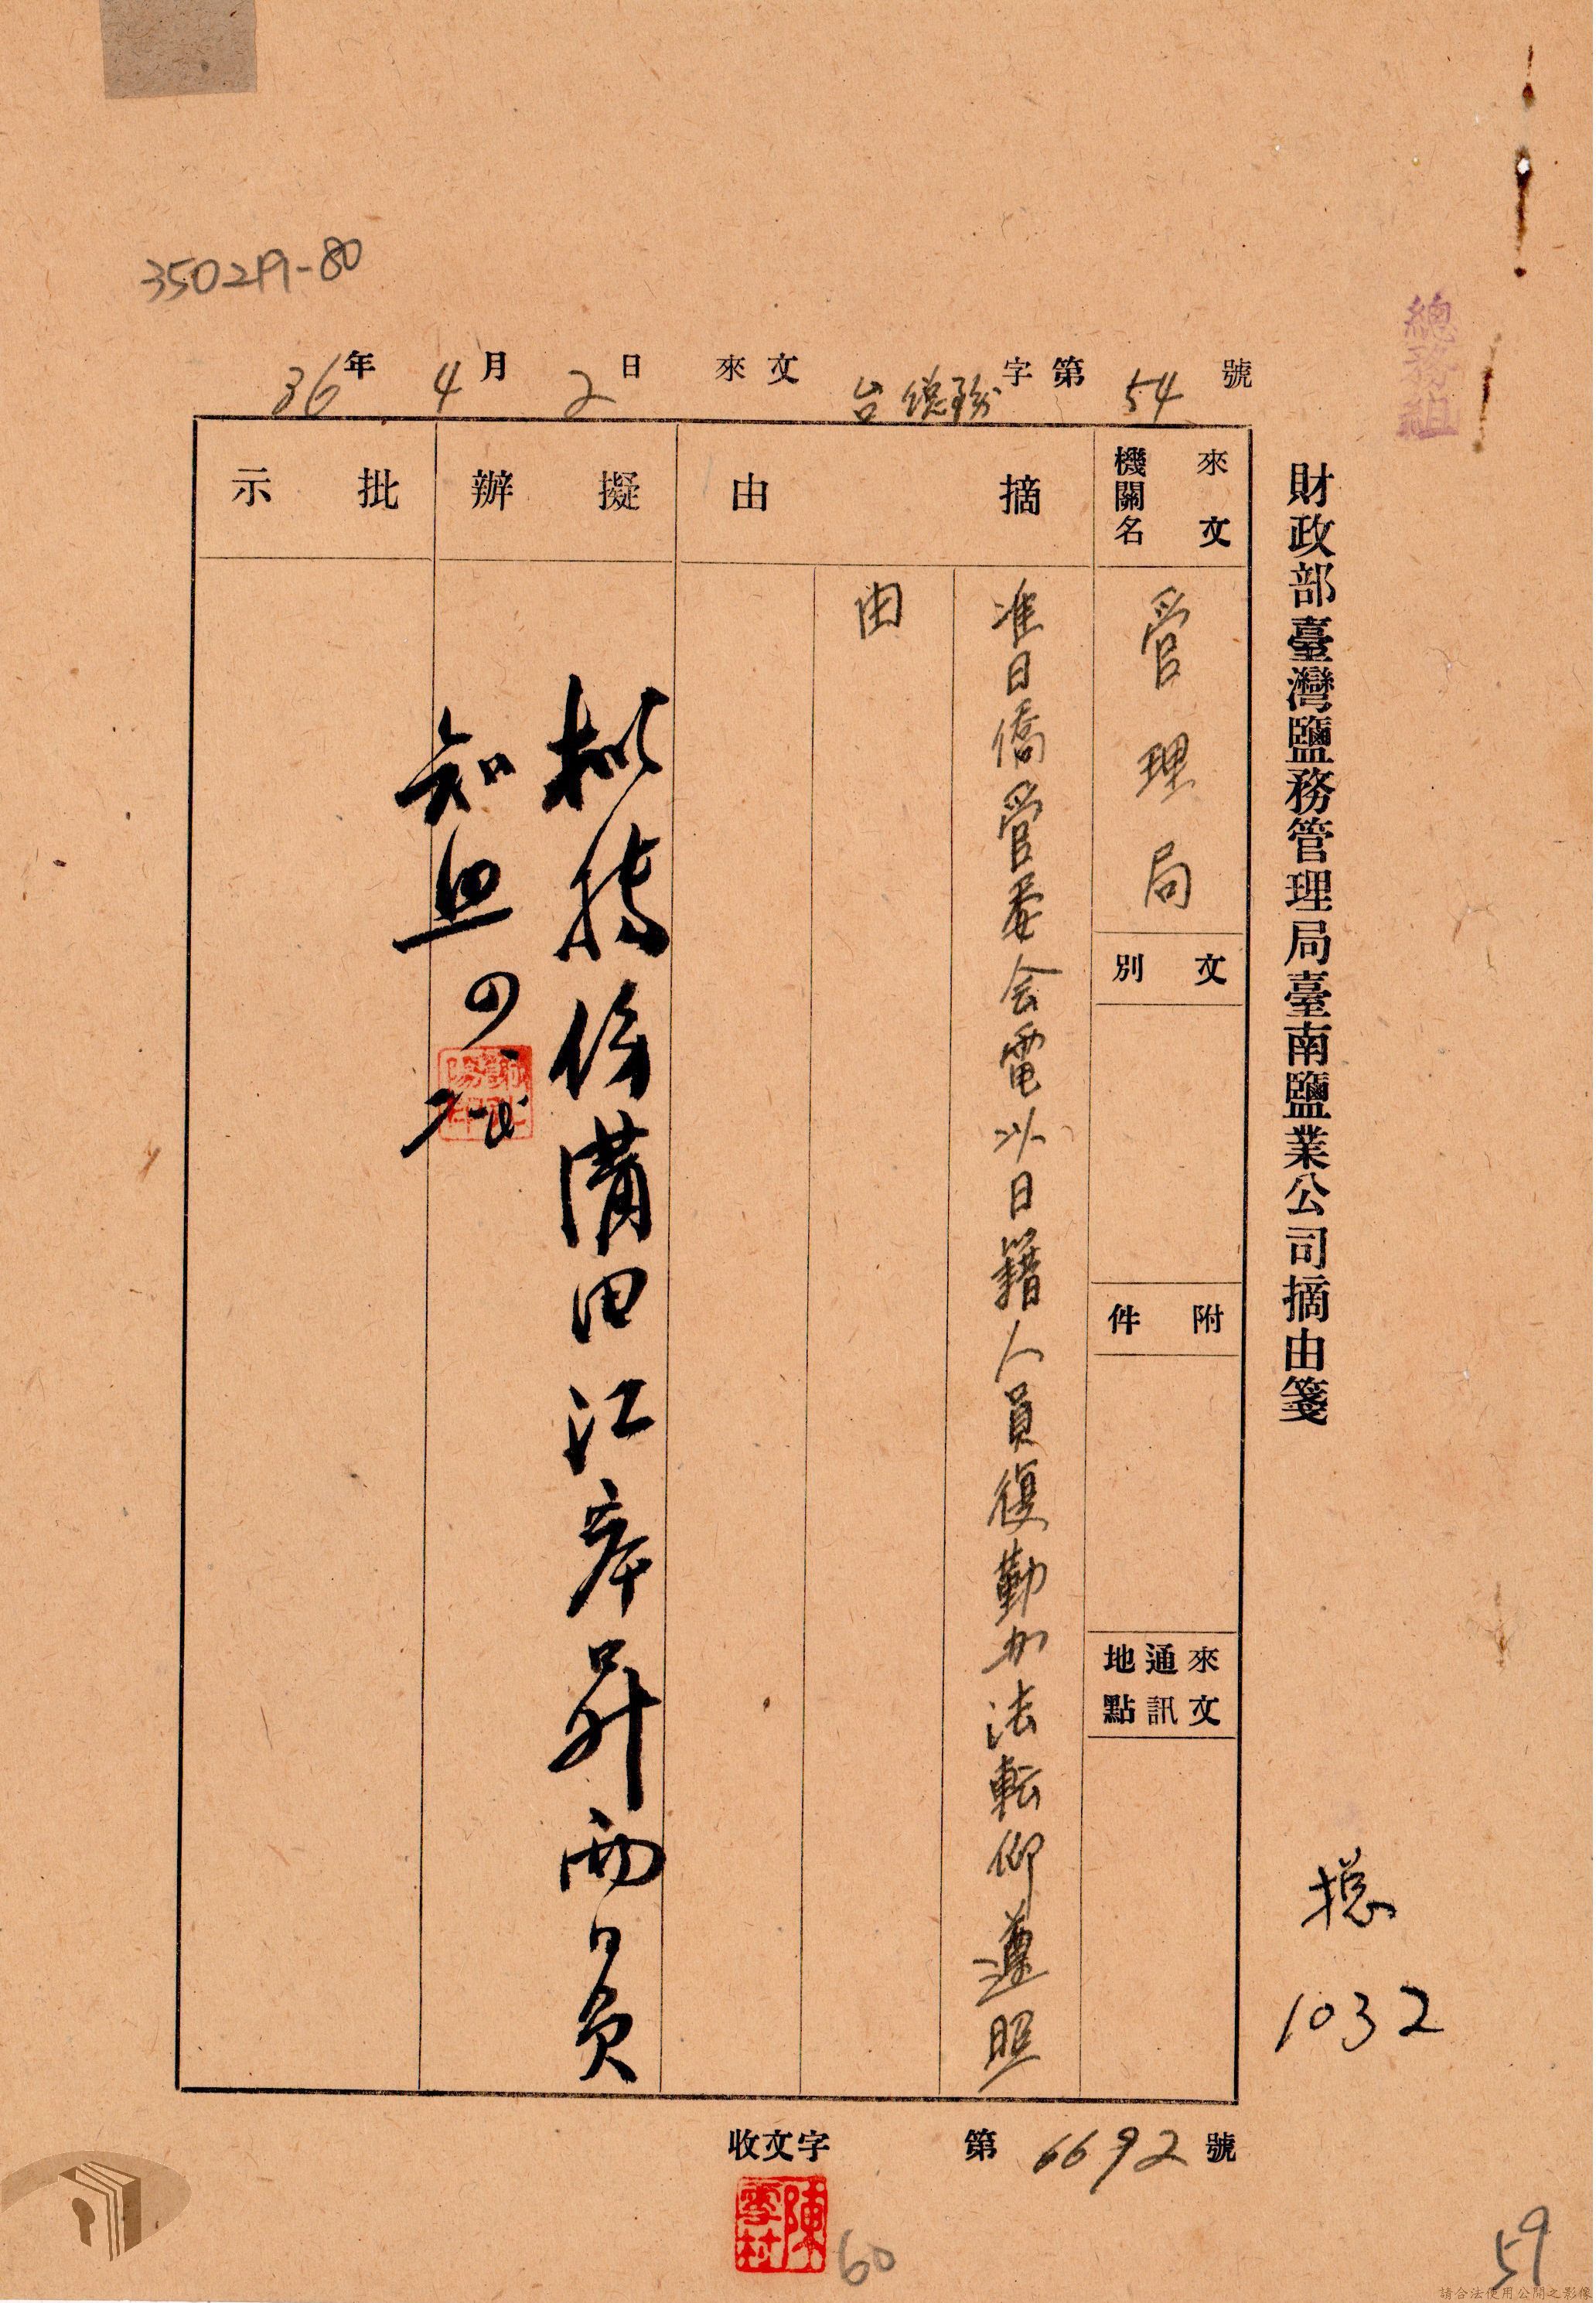 350219-80
總務組
財政部臺灣鹽務管理局臺南鹽業公司摘由箋
36年4月2日來文台總務字第54號
來文機關名
管理局
文別
附件
來文通訊地點
摘由
准日僑管委会電以日籍人員復勤办法転仰遵照
由
擬辦
田江
昇兩日員
知照
批示
收文字第6692號
陳雪村
總
1032
60
59
請合法使用公開之影像